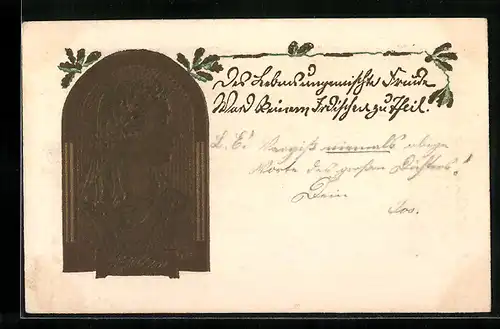 Des Lebens ungemischte Freude
Ward keinem Irdischen zu Theil.
L. E! Vergiß niemals obige
Worte des großen Dichters!
Dein
Jos.